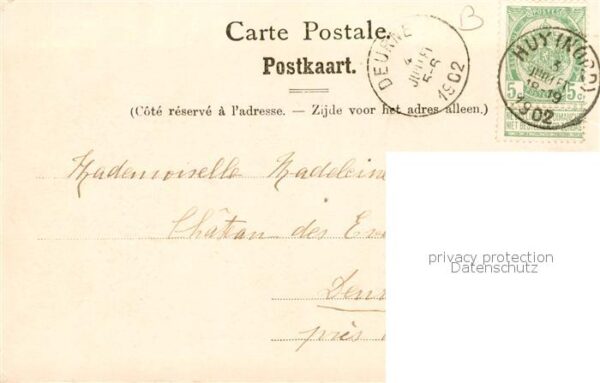 Carte Postale.
Postkaart.
(Côté réservé à l'adresse. — Zijde voor het adres alleen.)
DEURNE
4
JUILLET
5-6
1902
HUY (NORD)
3
JUILLET
18-19
1902
POSTES
5c 5c
NIET BESTELLEN OP ZONDAG
B
Mademoiselle Madeleine
Château des
près
privacy protection
Datenschutz